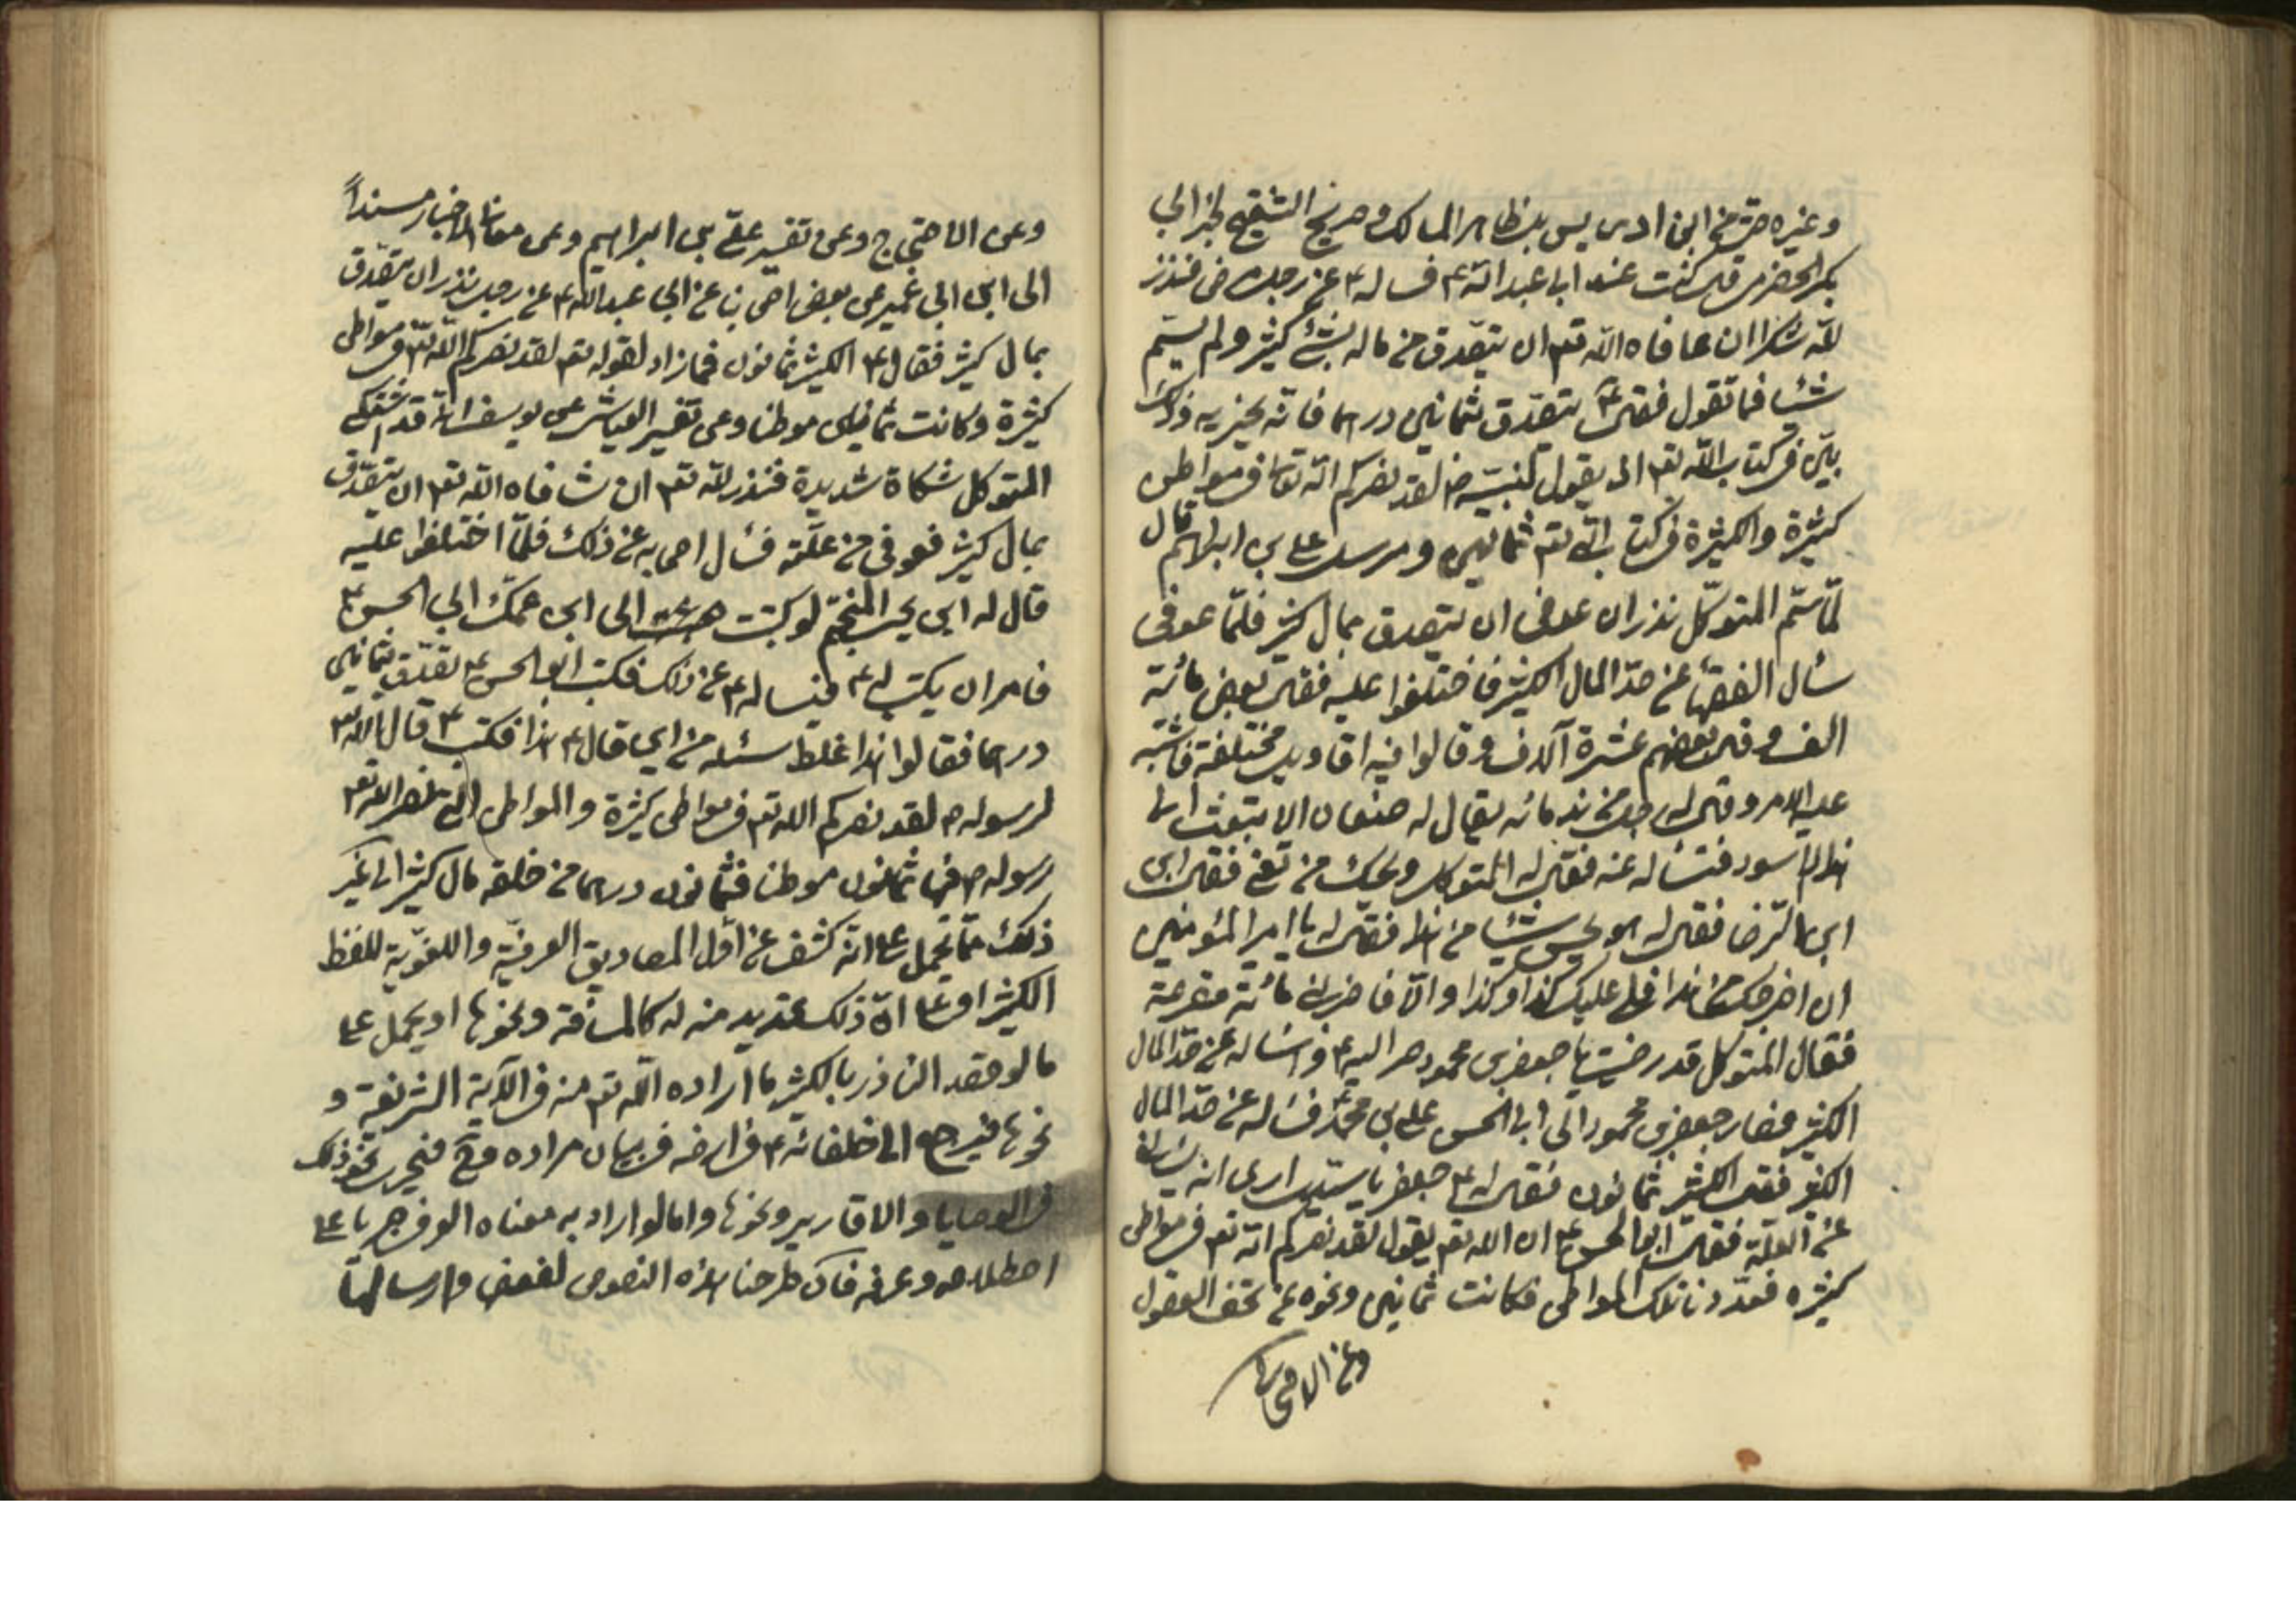 وغيره حتى من ابن ادريس بل ظاهر المسالك وصريح التنقيح لخبر ابي
بكر الحضرمي قال كنت عند ابا عبد الله ع فساله ع عن رجل مرض فنذر
لله شكرا ان عافاه الله تعم ان يتصدق من ماله بشئ كثير ولم يسم
شيئا فما تقول فقال ع يتصدق بثمانين درهما فانه يجزيه وذلك
بيّن في كتاب الله تعم اذ يقول لنبيه ص لقد نصركم الله تعالى في مواطن
كثيرة والكثيرة في كتاب الله تعم ثمانين ومرسل علي بن ابراهيم قال
لما سمّ المتوكل نذر ان عوفى ان يتصدق بمال كثير فلما عوفى
سأل الفقهاء عن حد المال الكثير فاختلفوا عليه فقال بعض مائة
الف وقال بعضهم عشرة آلاف وقالوا فيه اقاويل مختلفة فاشتبه
عليه الامر وقال له رجل من ندمائه يقال له صفعان الا تبعث الى
هذا الاسود فتسأله عنه فقال له المتوكل ويحك من تعني فقال ابن
ابن الرضا فقال له هو يحسن شيئا من هذا فقال له يا امير المؤمنين
ان اخرجك من هذا فلي عليك كذا وكذا والا فاضربني مائة مقرعة
فقال المتوكل قد رضيت يا جعفر بن محمود صر اليه ع واسأله عن حد المال
الكثير فصار جعفر بن محمود الى ابي الحسن علي بن محمد ع فسأله عن حد المال
الكثير فقال الكثير ثمانون فقال له ع جعفر يا سيدي ارى انه يسألني
عن العلة فقال ابو الحسن ع ان الله تعم يقول لقد نصركم الله تعم في مواطن
كثيره فعددنا تلك المواطن فكانت ثمانين ونحوه عن تحف العقول
وعن الاحتجاج
وعن الاحتجاج وعن تفسير علي بن ابراهيم وعن معاني الاخبار مسنداً
الى ابن ابي عمير عن بعض اصحابنا عن ابي عبد الله ع عن رجل نذر ان يتصدق
بمال كثير فقال ع الكثير ثمانون فمازاد لقوله تعم لقد نصركم الله تعم في مواطن
كثيرة وكانت ثمانين موطنا وعن تفسير العياشي عن يوسف انه قد اشتكى
المتوكل شكاة شديدة فنذر لله تعم ان شافاه الله تعم ان يتصدق
بمال كثير فعوفي من علّته فسأل اصحابه عن ذلك فلمّا اختلفوا عليه
قال له ابن يحيى المنجّم لو كتبت الى ابن عمّك ابي الحسن ع
فامر ان يكتب له ع فيساله ع عن ذلك فكتب ابو الحسن ع تصدّق بثمانين
درهما فقالوا هذا غلط سئله من اين قال ع هذا فكتب ع قال الله تعم
لرسوله ص لقد نصركم الله تعم في مواطن كثيرة والمواطن التي نصر الله تعم
رسوله ص فيها ثمانون موطنا فثمانون درهما من خلقه مال كثير الى غير
ذلك ممّا يحمل على انّه كشف عن اقل المصاديق العرفيّة واللغويّة للفظ
الكثير او على انّ ذلك تحديد منه له كالمسافة ونحوها او يحمل على
ما لو قصد الناذر بالكثير ما اراده الله تعم منه في الآية الشريفة و
نحوها فيرجع الى خلفائه ع في ارضه في بيان مراده وح فيجري نحو ذلك
في الوصايا والاقارير ونحوها واما لو اراد به معناه العرفي جريا على
اصطلاحه وعرفه فان طرحنا هذه النصوص لضعف وارسالها